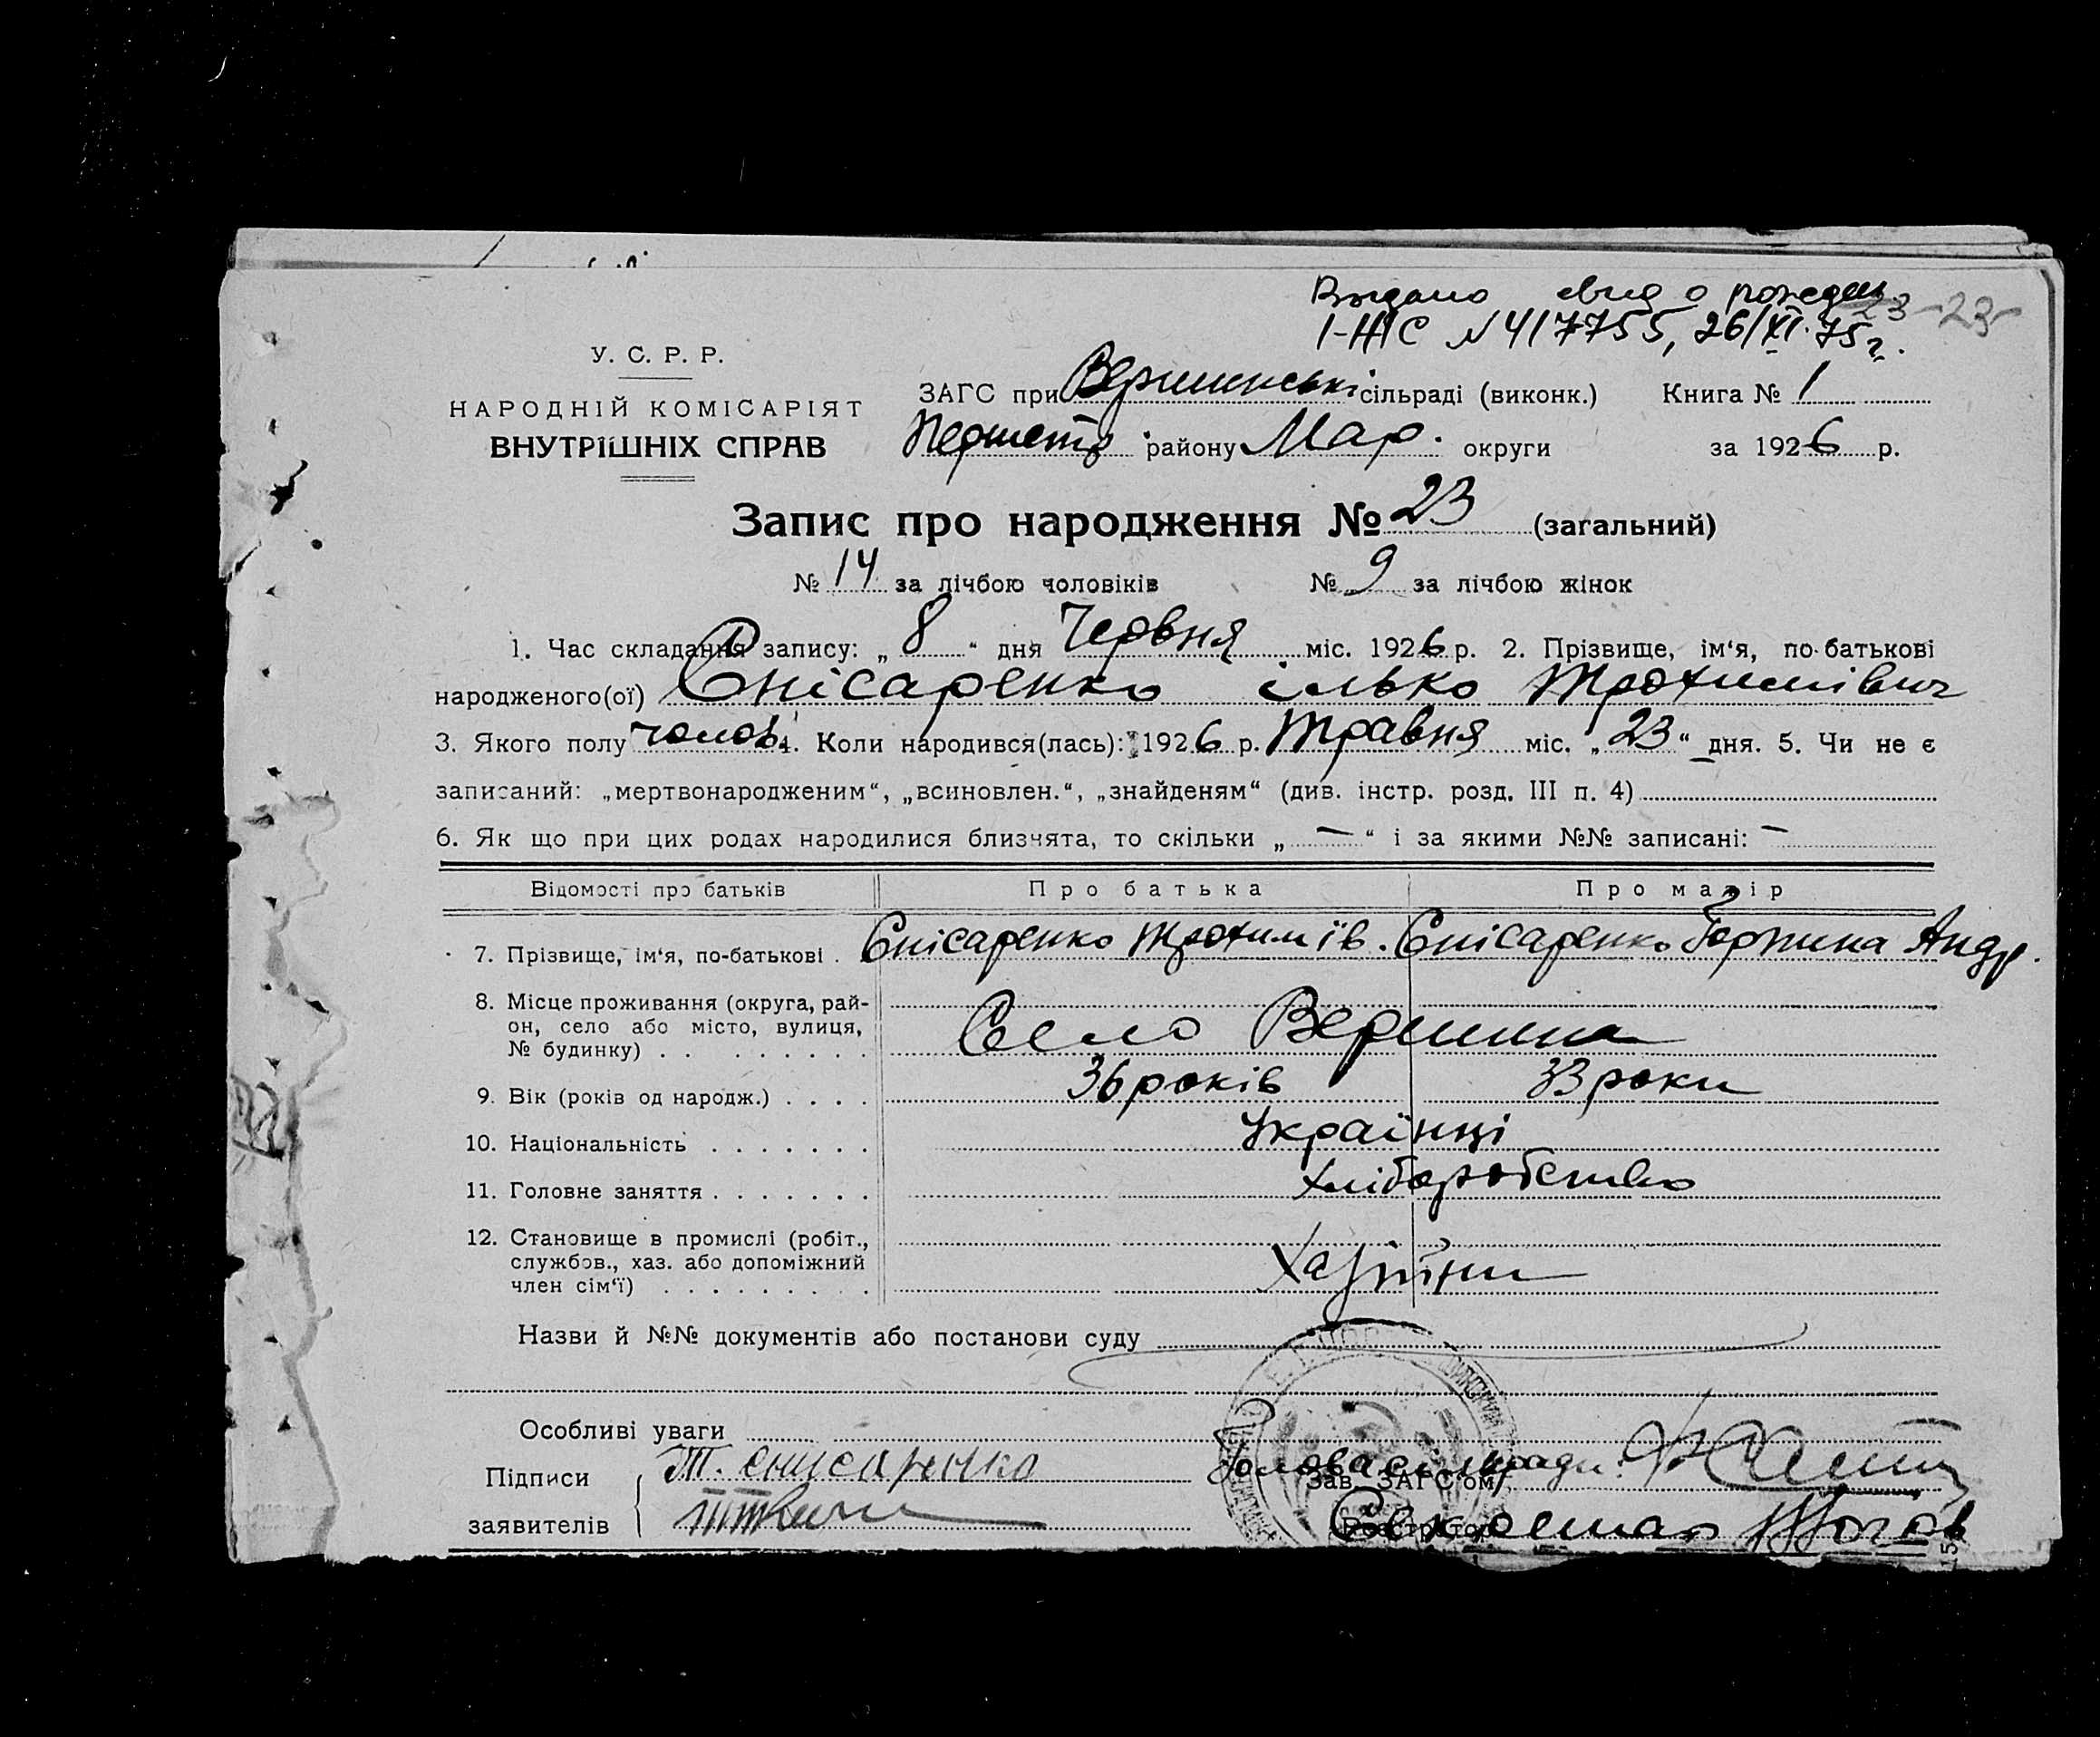 Выдано свид о рожден. 23-23-
І-ЖС №417755, 26/XI.75г.
У. С. Р. Р.
НАРОДНІЙ КОМІСАРІЯТ
ВНУТРІШНІХ СПРАВ
ЗАГС при Вершинські сільраді (виконк.) Книга № 1
району Мар. округи за 1926 р.
Запис про народження № 23 (загальний)
№ 14 за лічбою чоловіків № 9 за лічбою жінок
1. Час складання запису: „ 8 “ дня Червня міс. 1926 р. 2. Прізвище, ім‘я, по-батькові
народженого(ої) Єнісаренко ілько Трохимівич
3. Якого полу чолов. 4. Коли народився(лась): 1926 р. Травня міс. „ 23 “ дня. 5. Чи не є
записаний: „мертвонародженим“, „всиновлен.“, „знайденям“ (див. інстр. розд. III п. 4)
6. Як що при цих родах народилися близнята, то скільки „ — “ і за якими №№ записані: —
Відомості про батьків Про батька Про матір
7. Прізвище, ім‘я, по-батькові . Єнісаренко Трохим ів. Єнісаренко Горпина Андр.
8. Місце проживання (округа, рай-
он, село або місто, вулиця,
№ будинку) . . . . . . . . . Село Вершина
9. Вік (років од народж.) . . . . 36 років 33 роки
10. Національність . . . . . . . Українці
11. Головне заняття . . . . . . . Хліборобство
12. Становище в промислі (робіт.,
службов., хаз. або допоміжний
член сім‘ї) . . . . . . . . . Хазяїни
Назви й №№ документів або постанови суду
Особливі уваги
Підписи Т. єнисаренко Голова сільради
Зав. ЗАГС‘ом
заявителів Секретар